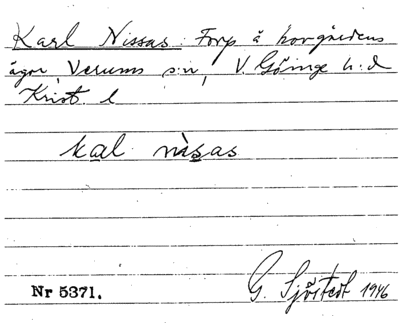 Karl Nissas: Torp å korgårdens
ägor, Verums s:n, V. Göinge h:d
Krist. l
kal nìsas
Nr 5371. G. Sjöstedt 1946